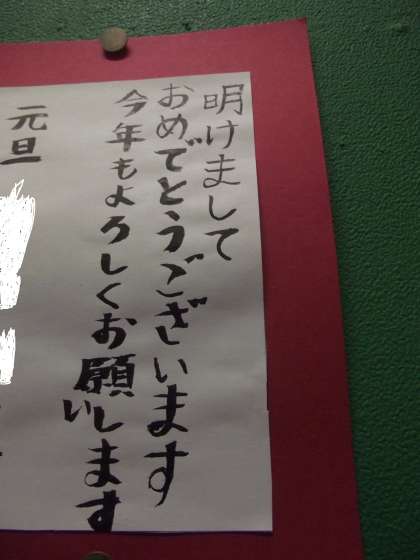 明けまして
おめでとうございます
今年もよろしくお願いします
元旦